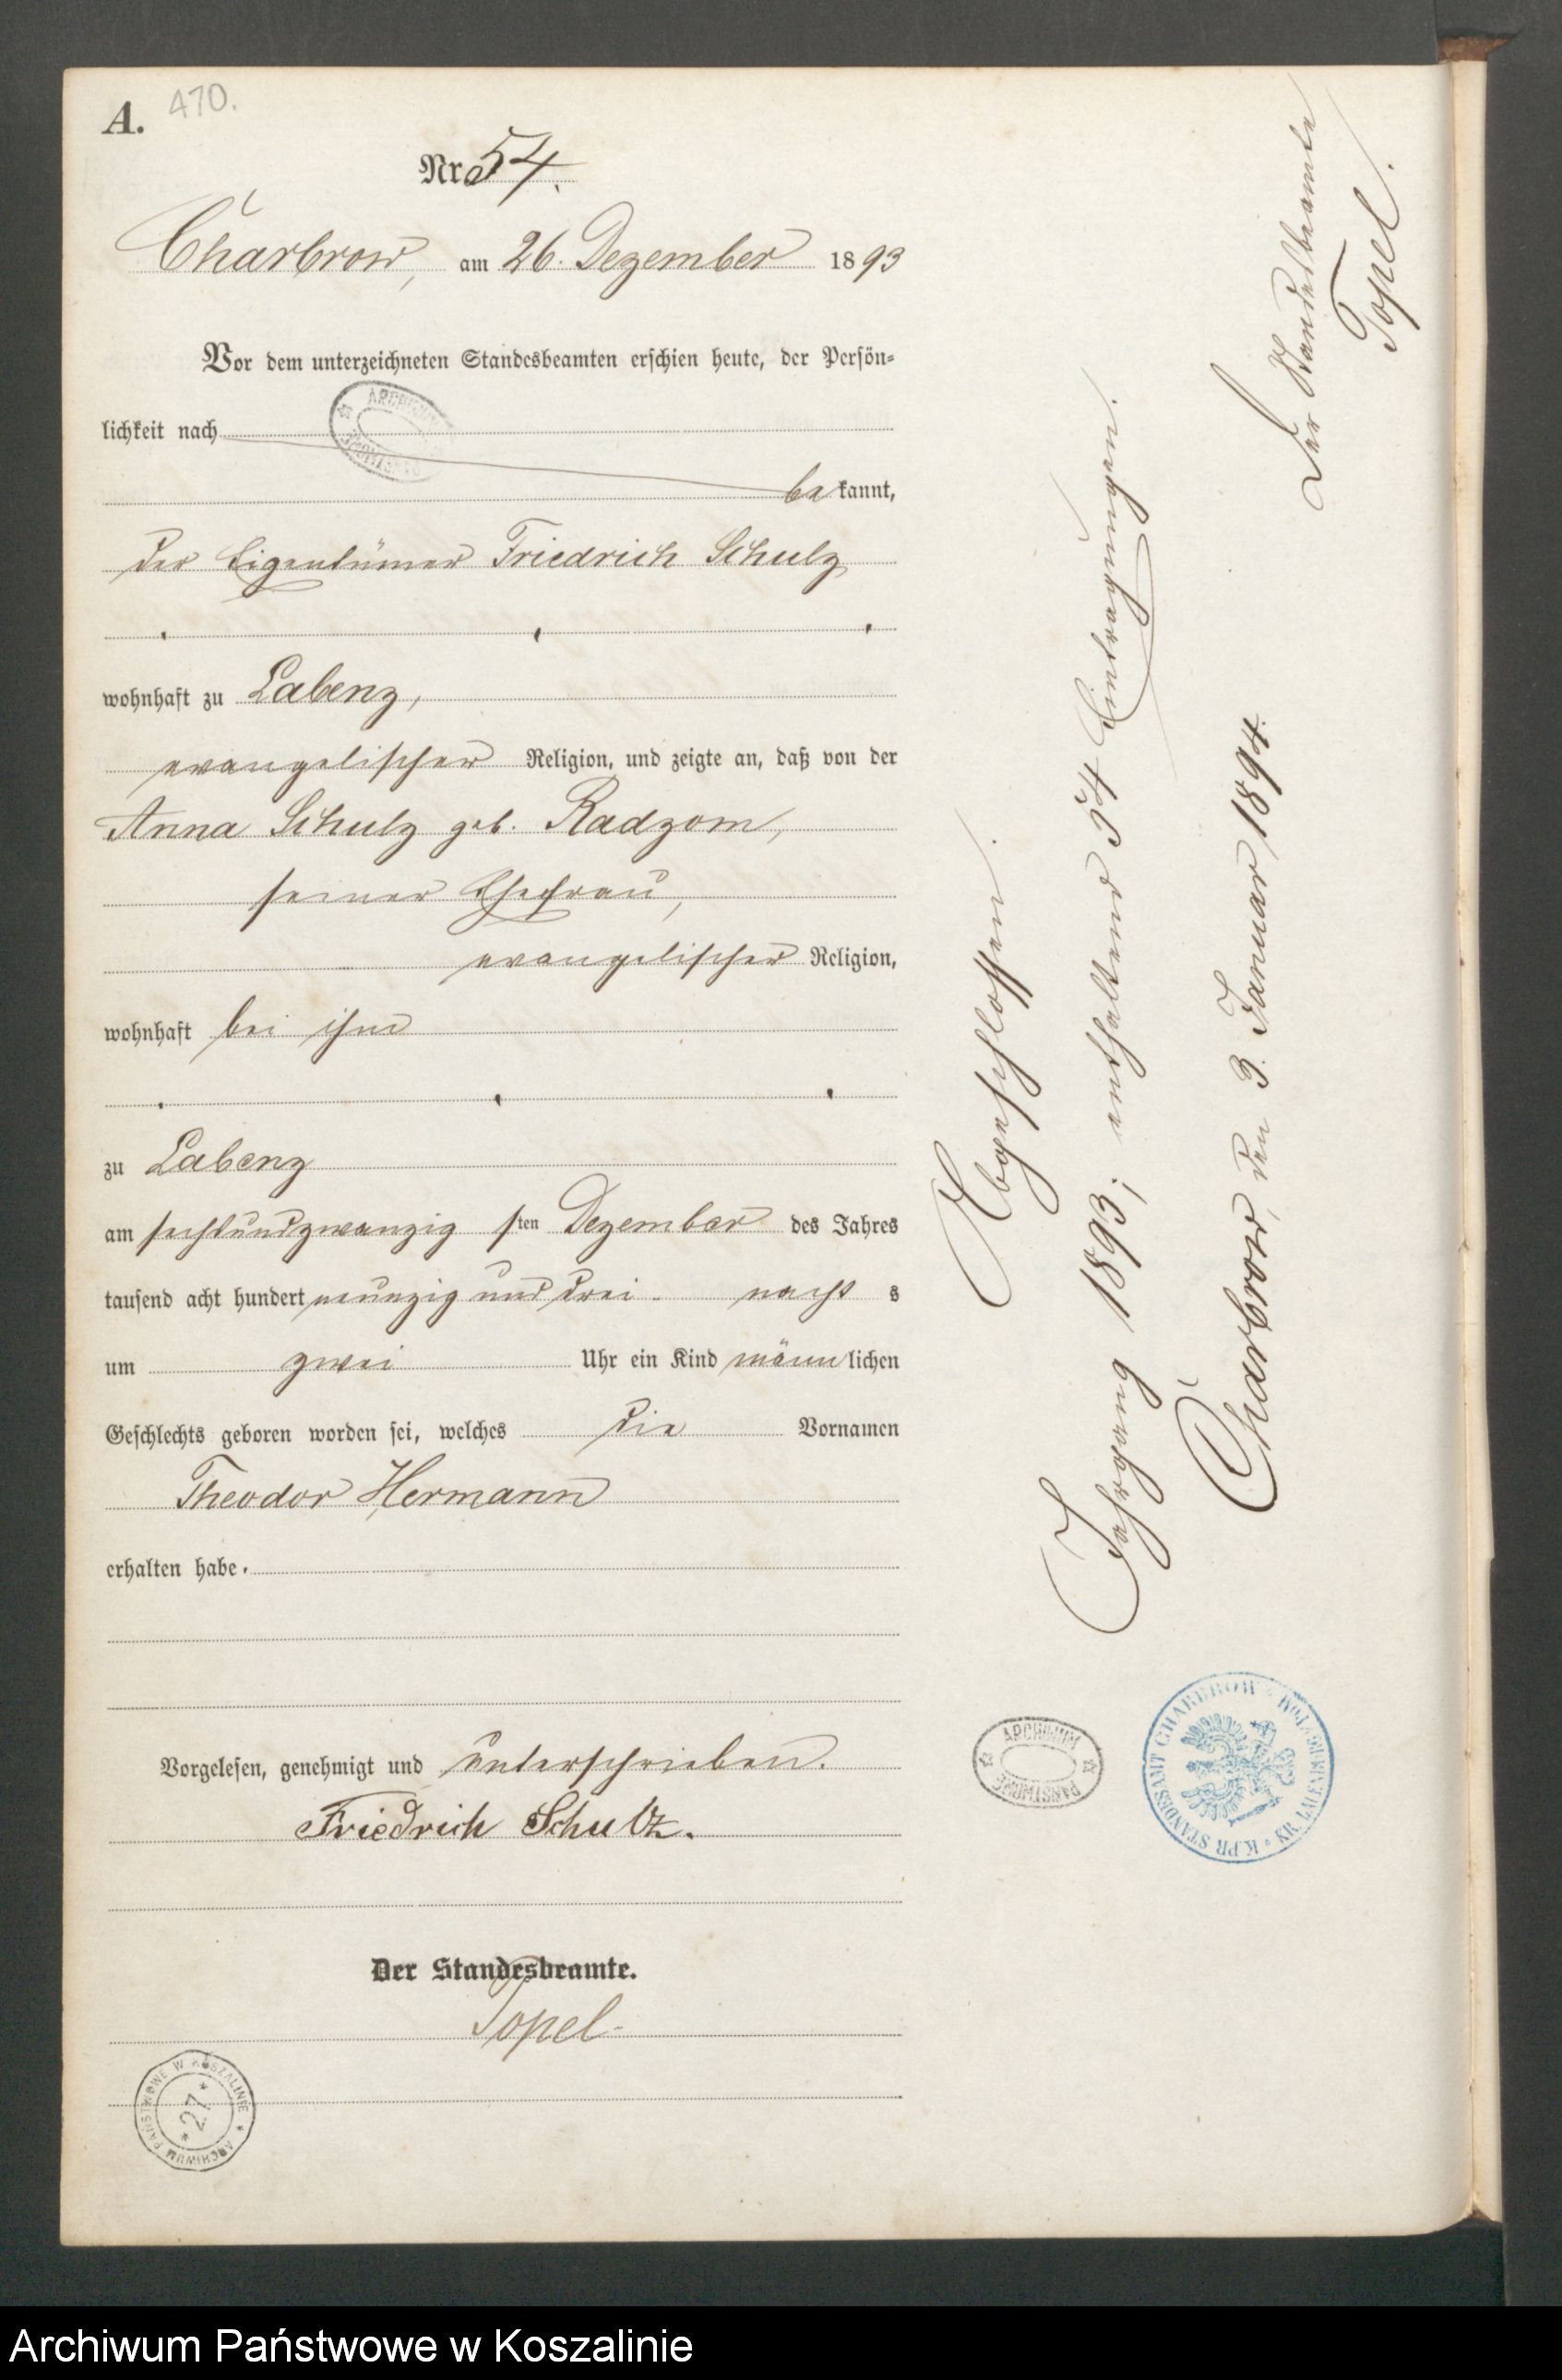 A. 470.
Nr 54.
Charbrow, am 26. Dezember 1893
Vor dem unterzeichneten Standesbeamten erschien heute, der Persön-
lichkeit nach
be kannt,
der Eigentümer Friedrich Schulz
wohnhaft zu Labenz,
evangelischer Religion, und zeigte an, daß von der
Anna Schulz geb. Radzom,
seiner Ehefrau,
evangelischer Religion,
wohnhaft bei ihm
zu Labenz
am sechsundzwanzig sten Dezember des Jahres
tausend acht hundert neunzig und drei nacht s
um zwei Uhr ein Kind männ lichen
Geschlechts geboren worden sei, welches die Vornamen
Theodor Hermann
erhalten habe.
Vorgelesen, genehmigt und unterschrieben.
Friedrich Schultz.
Der Standesbeamte.
Topel
ARCHIWUM PAŃSTWOWE W KOSZALINIE
* 27 *
Abgeschlossen.
Jahrgang 1893; enthaltend 54 Eintragungen.
Charbrow, den 3. Januar 1894.
Der Standesbeamte
Topel.
ARCHIWUM PAŃSTWOWE
K.PR STANDESAMT CHARBROW
Archiwum Państwowe w Koszalinie